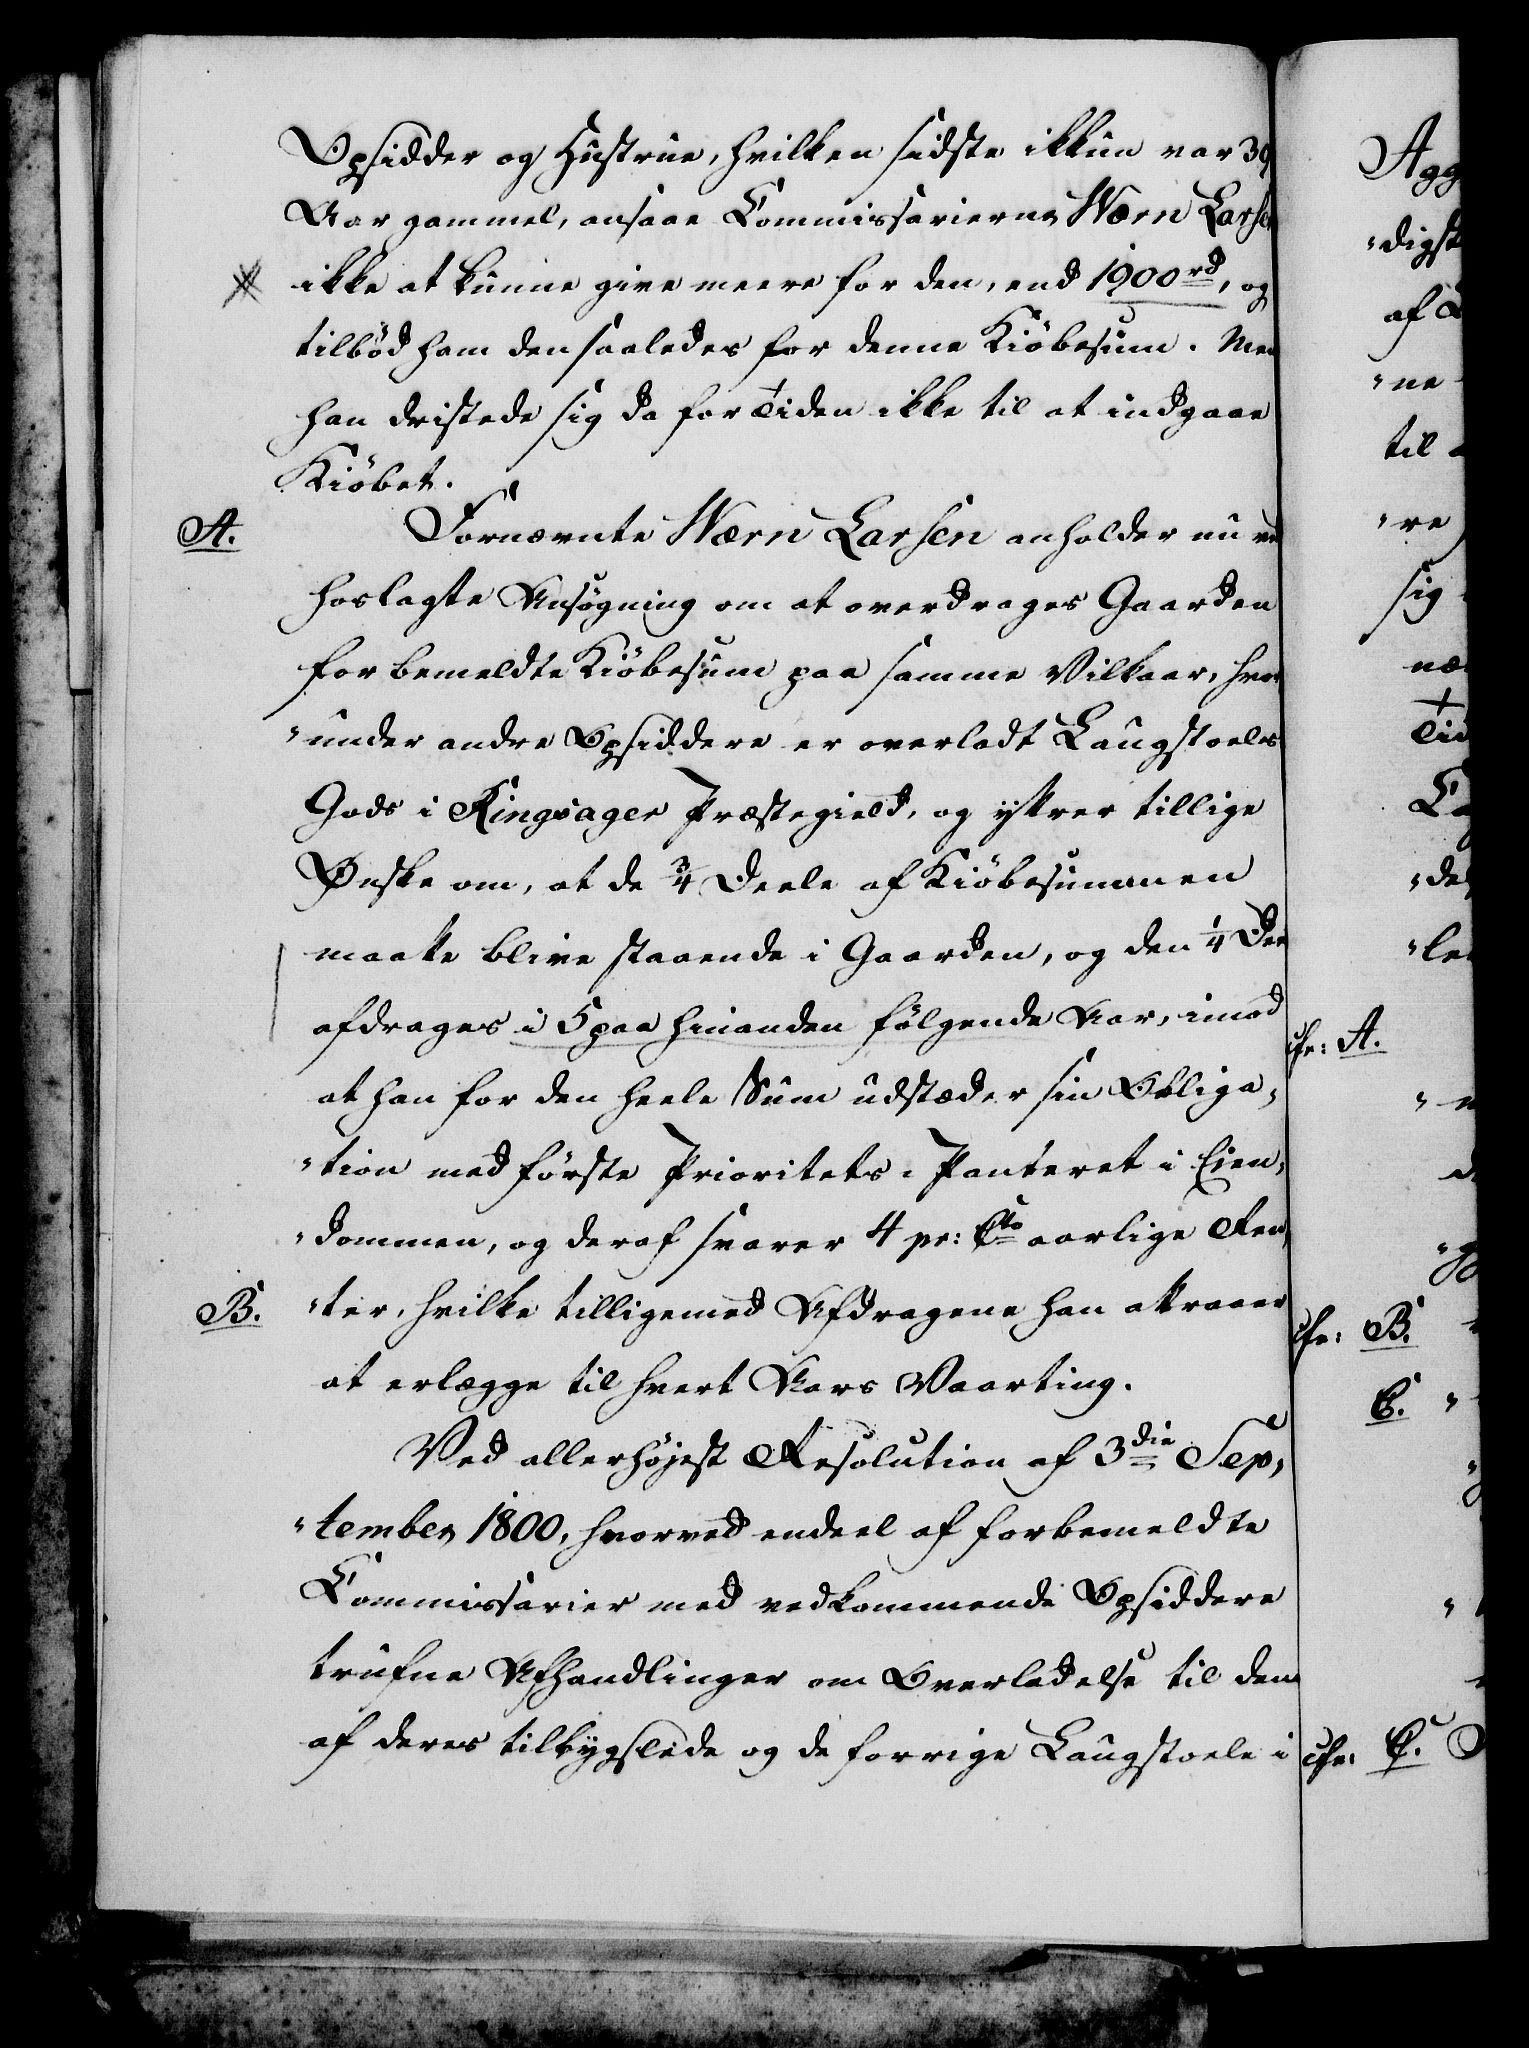 Opsidder og Hustrue, hvilken sidste ikkun var 39
Aar gammel, ansaae Commissarierne Wærn Larsen
ikke at kunne give meere for den, end 1900 rd, og
tilbød ham den saaledes for denne Kiöbesum. Men
han dristede sig da for Tiden ikke til at indgaae
Kiöbet.
A. Fornævnte Wærn Larsen anholder nu ved
hoslagte Ansøgning om at overdrages Gaarden
for bemeldte Kiöbesum paa samme Vilkaar, hvor
"under andre Opsiddere er overladt Laugstoels
Gods i Ringsager Præstegield, og yttrer tillige
Ønske om, at de 3/4 Deele af Kiöbesummen
maatte blive staaende i Gaarden, og den 1/4 Deel
afdrages i 5 paa hinanden følgende Aar, imod
at han for den heele Sum udstæder sin Obliga,
"tion med første Prioritets Panteret i Eien,
"dommen, og deraf svarer 4 pr: Cto aarlige Ren,
B. "ter, hvilke tilligemed Afdragene han attraaer
at erlægge til hvert Aars Vaarting.
Ved allerhøjest Resolution af 3die Sep,
"tember 1800, hvorved endeel af forbemeldte
Commissarier med vedkommende Opsiddere
trufne Afhandlinger om Overladelse til dem
af deres tilbygslede og de forrige Laugstoele i
Agg
"digst
af
"ne
til
"re
sig
Tid
"de
"le
cfr: A.
cfr: B.
C.
cfr: C.